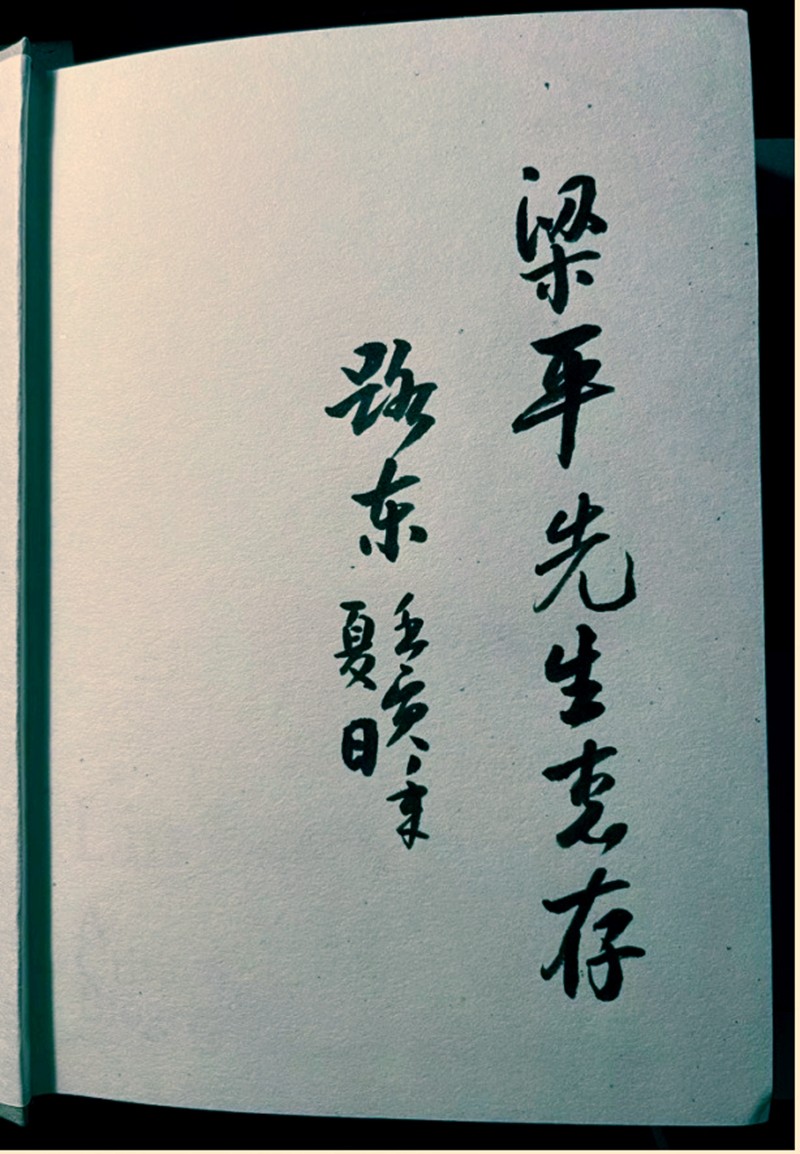 梁平先生惠存
路东
壬寅年
夏日